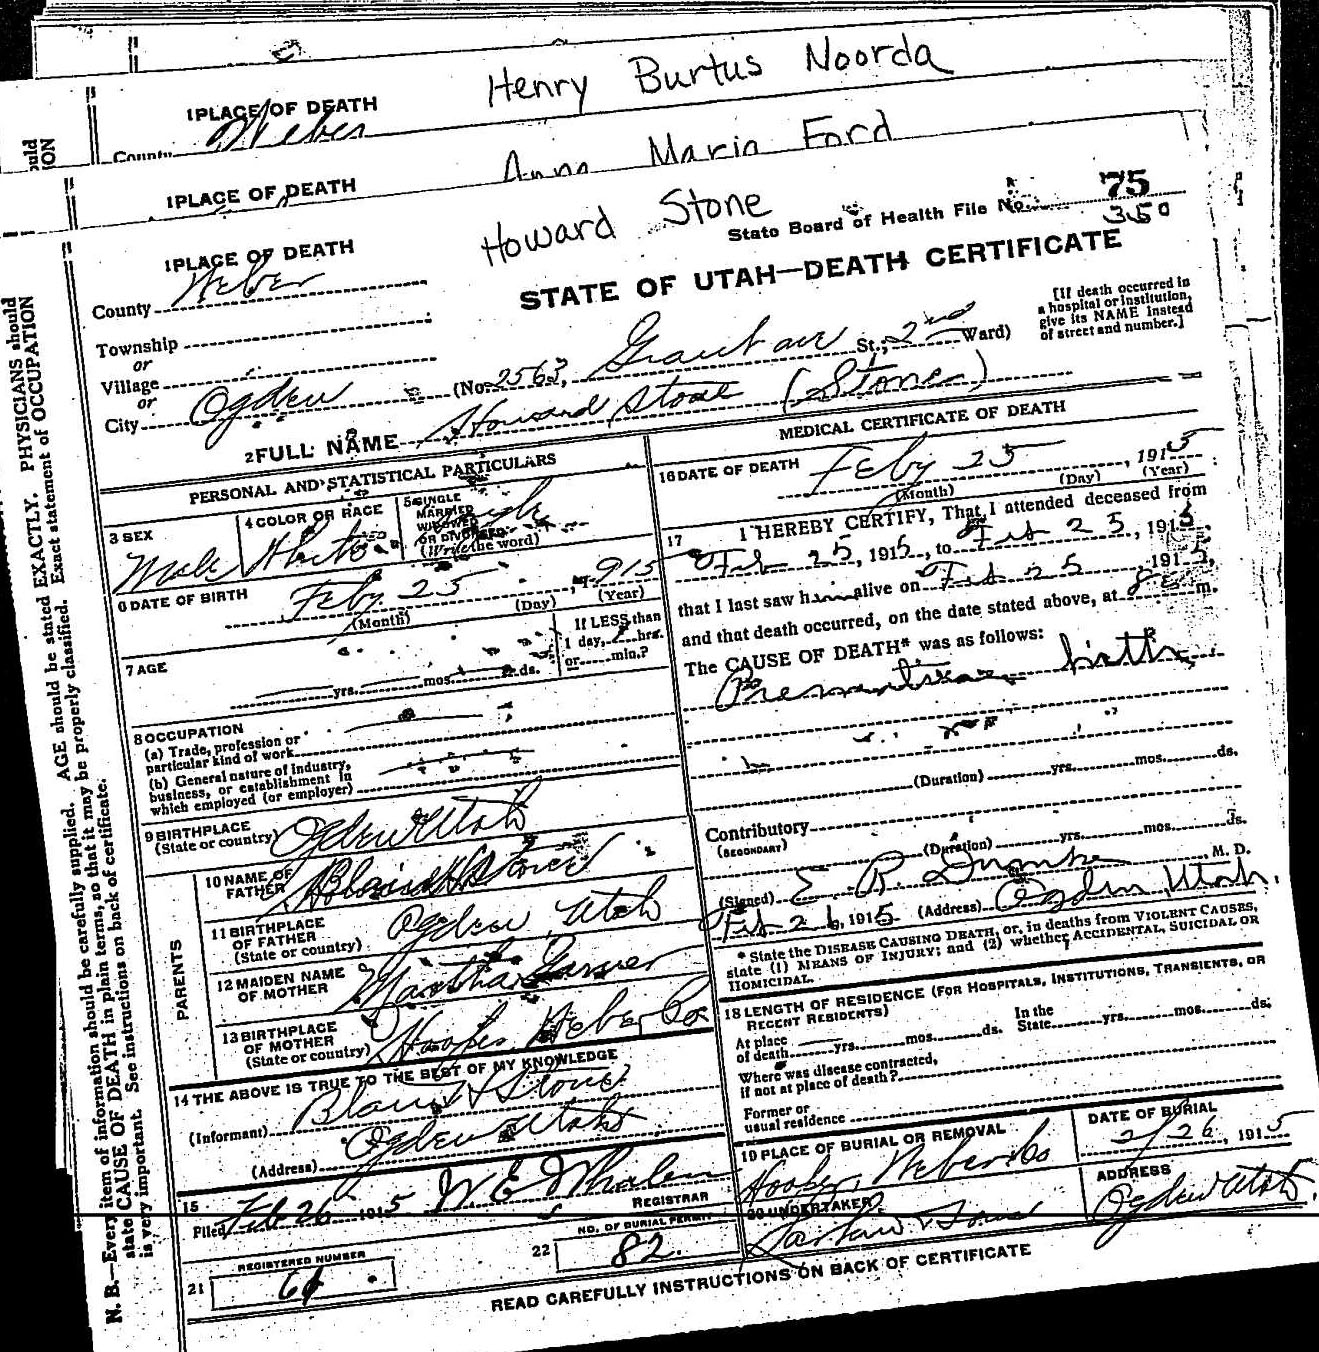 1 PLACE OF DEATH
Henry Burtus Noorda
County Weber
1 PLACE OF DEATH
Anna Maria Ford
1 PLACE OF DEATH
Howard Stone
State Board of Health File No. 75
350
STATE OF UTAH—DEATH CERTIFICATE
County Weber
Township
or
Village
or
City Ogden (No. 2563, Grant ave St., 2nd Ward)
[If death occurred in a hospital or institution, give its NAME instead of street and number.]
2 FULL NAME Howard Stone (Stone)
PERSONAL AND STATISTICAL PARTICULARS
3 SEX
Male
4 COLOR OR RACE
White
5 SINGLE MARRIED WIDOWED OR DIVORCED (Write the word)
Single
6 DATE OF BIRTH
Feby 25, 1915
(Month) (Day) (Year)
7 AGE
yrs. mos. ds.
If LESS than 1 day, hrs. or min.?
8 OCCUPATION
(a) Trade, profession or particular kind of work
(b) General nature of industry, business, or establishment in which employed (or employer)
9 BIRTHPLACE (State or country) Ogden Utah
PARENTS
10 NAME OF FATHER Blain H Stone
11 BIRTHPLACE OF FATHER (State or country) Ogden, Utah
12 MAIDEN NAME OF MOTHER Martha Garner
13 BIRTHPLACE OF MOTHER (State or country) Hooper Weber Co
14 THE ABOVE IS TRUE TO THE BEST OF MY KNOWLEDGE
(Informant) Blain H Stone
(Address) Ogden Utah
15
Filed Feb 26 1915 W E Whalen
REGISTRAR
REGISTERED NUMBER
21
NO. OF BURIAL PERMIT
22 82.
MEDICAL CERTIFICATE OF DEATH
16 DATE OF DEATH
Feby 25, 1915
(Month) (Day) (Year)
17 I HEREBY CERTIFY, That I attended deceased from
Feb 25, 1915, to Feb 25, 1915,
that I last saw him alive on Feb 25 1915,
and that death occurred, on the date stated above, at 8 m.
The CAUSE OF DEATH* was as follows:
Premature birth
(Duration) yrs. mos. ds.
Contributory (SECONDARY)
(Duration) yrs. mos. ds.
(Signed) E. R. Dumke, M. D.
Feb 26, 1915 (Address) Ogden, Utah.
* State the DISEASE CAUSING DEATH, or, in deaths from VIOLENT CAUSES,
state (1) MEANS OF INJURY; and (2) whether ACCIDENTAL, SUICIDAL OR
HOMICIDAL.
18 LENGTH OF RESIDENCE (FOR HOSPITALS, INSTITUTIONS, TRANSIENTS, OR RECENT RESIDENTS)
At place of death yrs. mos. ds. In the State yrs. mos. ds.
Where was disease contracted, if not at place of death?
Former or usual residence
19 PLACE OF BURIAL OR REMOVAL
Hooper, Weber Co
DATE OF BURIAL
2/26, 1915
20 UNDERTAKER
ADDRESS
Ogden Utah.
READ CAREFULLY INSTRUCTIONS ON BACK OF CERTIFICATE
N. B.—Every item of information should be carefully supplied. AGE should be stated EXACTLY. PHYSICIANS should
state CAUSE OF DEATH in plain terms, so that it may be properly classified. Exact statement of OCCUPATION
is very important. See instructions on back of certificate.